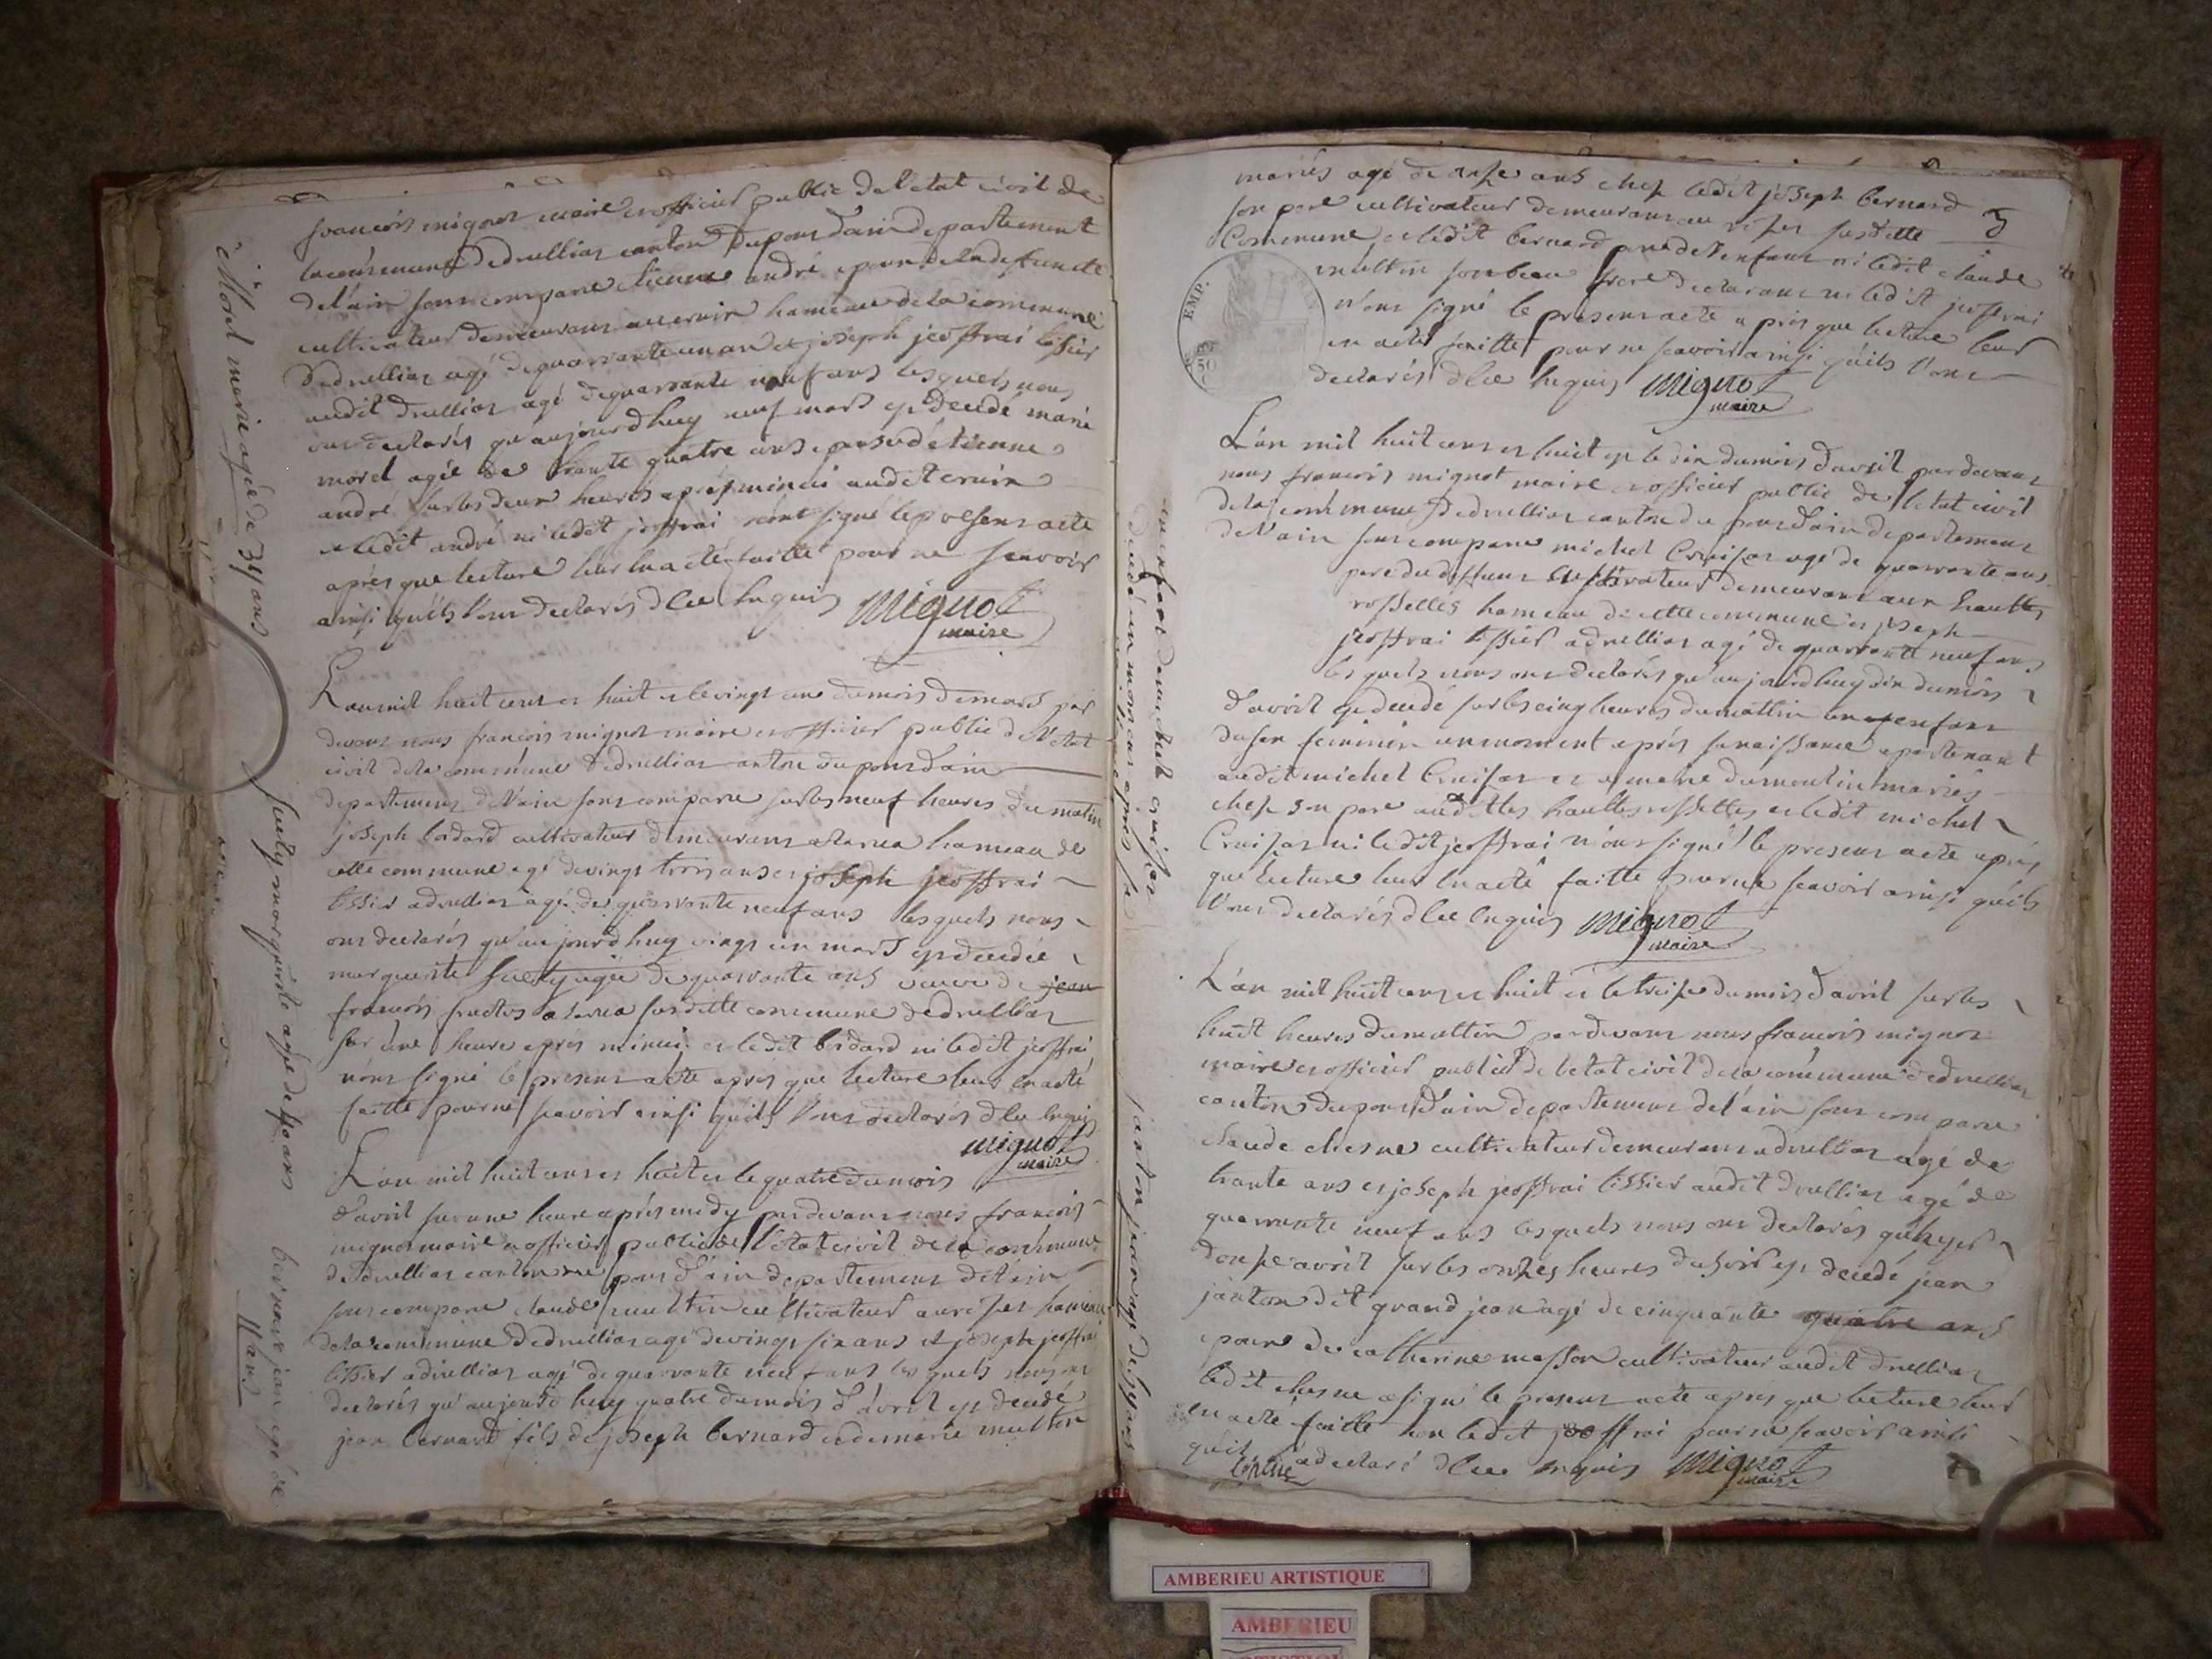 francois mignot maire et officier public de l'etat civil de
la commune de druillias canton du pont d'ain departement
de l'ain sont comparu etienne andré epoux de la defuncte
cultivateur demeurant au cruix hameau de la commune
de druillias agé de quarrante un an et joseph jeoffrai tissier
audit druillias agé de quarrante neuf ans lesquels nous
ont declarés qu'aujourdhuy neuf mars est decedé marie
morel agée de trante quatre ans epouse d'etienne
andré sur les deux heures apres minui audit cruix
et ledit andré ni ledit jeoffrai n'ont signé le present acte
après que lecture leur en a été faitte pour ne scavoir
ainsi qu'ils l'ont declarés de ce enquis Mignot
maire
L'an mil huit cent et huit et le vingt un du mois de mars par
devant nous francois mignot maire et officier public de l'etat
civil de la commune de druillias canton du pont d'ain
departement de l'ain sont comparu sur les neuf heures du matin
joseph bordard cultivateur demeurant a hameau de
cette commune agé de vingt trois ans et joseph jeoffrai
tissier a druillias agé de quarrante neuf ans lesquels nous
ont declarés qu'aujourdhuy vingt un mars est decedée
marguerite agée de quarrante ans veuve de jean
francois a susditte commune de druillias
sur une heure après minui et ledit bordard ni ledit jeoffrai
n'ont signé le present acte apres que lecture leur en a eté
faitte pour ne scavoir ainsi qu'ils l'ont declarés de ce enquis
Mignot
maire
L'an mil huit cent et huit et le quatre du mois
d'avril sur une heure après midy par devant nous francois
mignot maire et officier public de l'etat civil de la commune
de druillias canton du pont d'ain departement de l'ain
sont comparu claude multin cultivateur hameau
de la commune de druillias agé de vingt six ans et joseph jeoffrai
tissier a druillias agé de quarrante neuf ans lesquels nous ont
declarés qu'aujourd'huy quatre du mois d'avril est decedé
jean bernard fils de joseph bernard et de marie multin
Morel marie agée de 34 ans
marguerite agée de 40 ans
bernard jean agé de
11 ans
mariés agé de onze ans chez ledit joseph bernard
son pere cultivateur demeurant au susditte
Commune et ledit bernard pere de l'enfant ni ledit claude
multin son beau frere declarant ni ledit jeoffrai
n'ont signé le present acte après que lecture leur
en a eté faitte pour ne scavoir ainsi qu'ils l'ont
declarés de ce enquis Mignot
maire
5
EMP.
50
L'an mil huit cent et huit et le dix du mois d'avril par devant
nous francois mignot maire et officier public de l'etat civil
de la commune de druillias canton du pont d'ain departement
de l'ain sont comparu michel Cruisat agé de quarrante ans
pere du deffunt cultivateur demeurant aux hauttes
rossettes hameau de cette commune et joseph
jeoffrai tissier a druillias agé de quarrante neuf ans
lesquels nous ont declarés qu'aujourdhuy dix du mois
d'avril est decedé sur les cinq heures du mattin un enfant
du sex feminin un moment après sa naissance apartenant
audit michel Cruisat et a marie dumoulin mariés
chez son pere auxdittes hauttes rossettes et ledit michel
Cruisat ni ledit jeoffrai n'ont signé le present acte après
que lecture leur en a eté faitte pour ne scavoir ainsi qu'ils
l'ont declarés de ce enquis Mignot
maire
L'an mil huit cent et huit et le treise du mois d'avril sur les
huit heures du mattin par devant nous francois mignot
maire et officier public de l'etat civil de la commune de druillias
canton du pont d'ain departement de l'ain sont comparu
claude chesne cultivateur demeurant a druillias agé de
trante ans et joseph jeoffrai tissier audit druillias agé de
quarrante neuf ans lesquels nous ont declarés qu'hyer
douse avril sur les onzes heures du soir est decedé jean
janton dit grand jean agé de cinquante quatre ans
epoux de catherine masson cultivateur audit druillias
ledit chesne a signé le present acte après que lecture leur
en a eté faitte non ledit jeoffrai pour ne scavoir ainsi
qu'il a declaré de ce enquis Mignot
chesne
maire
un enfant de michel cruisat
decedé un moment après sa
naissance
janton jean agé de 54 ans
AMBERIEU ARTISTIQUE
AMBERIEU